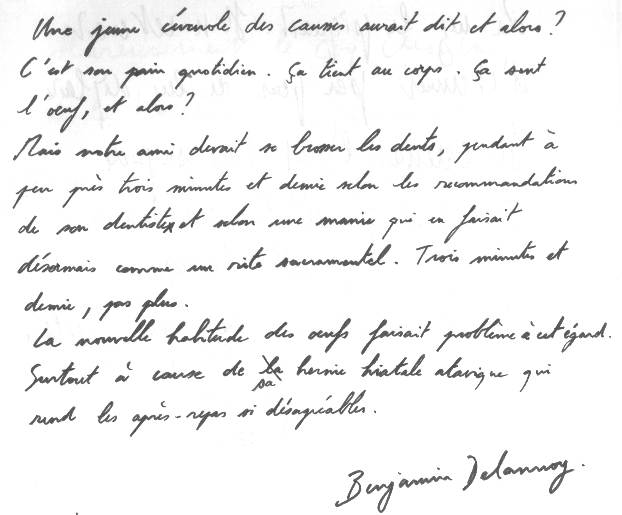 Une jeune cévenole des causses aurait dit et alors ?
C'est son pain quotidien. Ça tient au corps. Ça sent
l'oeuf, et alors ?
Mais notre ami devait se brosser les dents, pendant à
peu près trois minutes et demie selon les recommandations
de son dentiste et selon une manie qui en faisait
désormais comme un rite sacramentel. Trois minutes et
demie, pas plus.
La nouvelle habitude des oeufs faisait problème à cet égard.
Surtout à cause de sa hernie hiatale atavique qui
rend les après-repas si désagréables.
Benjamin Delannoy.